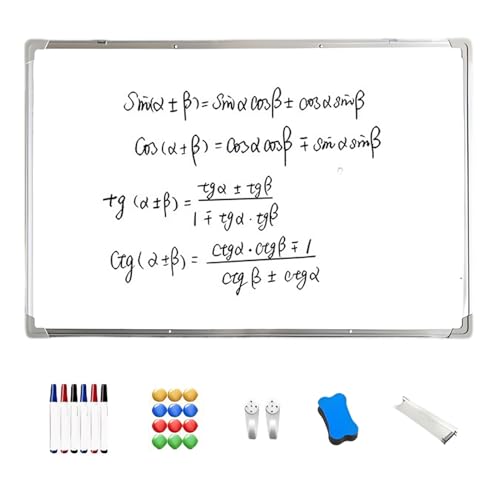 Sin(α ± β) = Sinα cosβ ± cosα sinβ
Cos(α ± β) = Cosα cosβ ∓ sinα sinβ
tg(α ± β) = (tgα ± tgβ) / (1 ∓ tgα · tgβ)
Ctg(α ± β) = (Ctgα · Ctgβ ∓ 1) / (Ctgβ ± Ctgα)